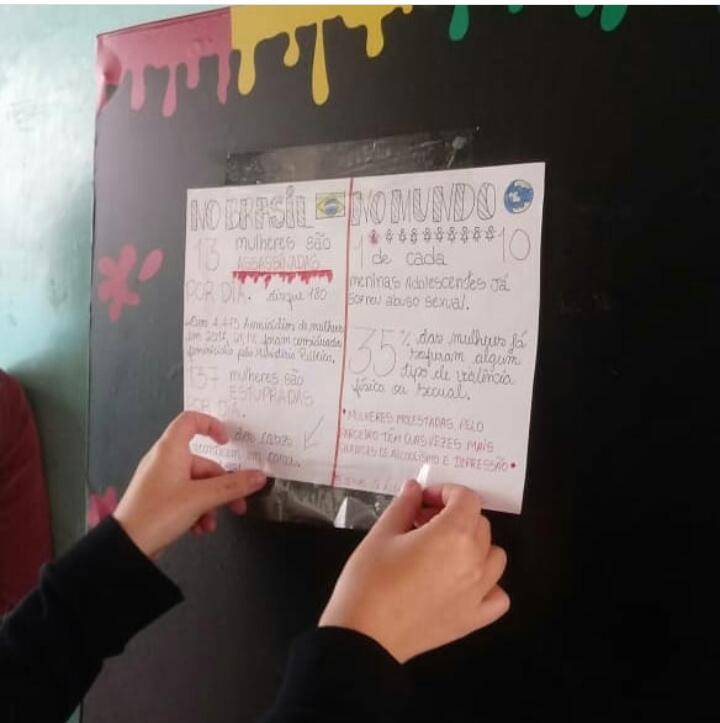 NO BRASIL
13 mulheres são
ASSASSINADAS
POR DIA. disque 180
4.473 homicídios de mulheres
em foram
feminicídio pelo Ministério Público.
137 mulheres são
ESTUPRADAS
POR DIA.
dos casos
acontecem em casa.
NO MUNDO
1 10
de cada
meninas adolescentes já
sofreu abuso sexual.
35% das mulheres já
sofreram algum
tipo de violência
física ou sexual.
• MULHERES MOLESTADAS, PELO
PARCEIRO TÊM DUAS VEZES MAIS
CHANCES DE ALCOOLISMO E DEPRESSÃO •